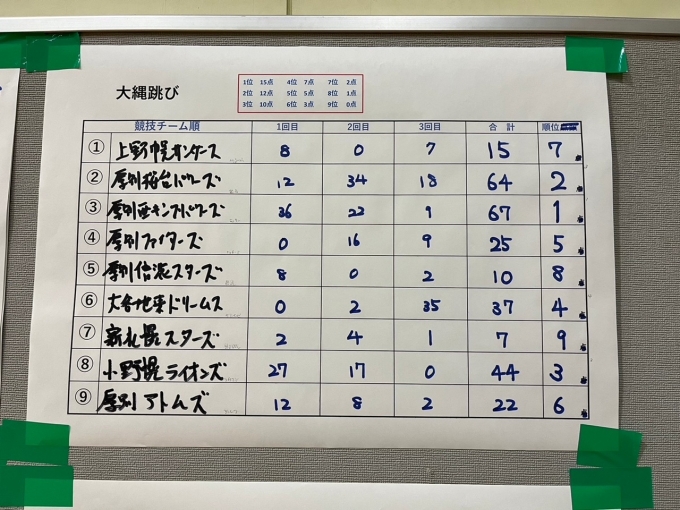 大縄跳び
1位 15点 4位 7点 7位 2点
2位 12点 5位 5点 8位 1点
3位 10点 6位 3点 9位 0点
競技チーム順 1回目 2回目 3回目 合計 順位
① 上野幌サンダース 8 0 7 15 7
② 厚別桜台パワーズ 12 34 18 64 2
③ 厚別西キングパワーズ 36 22 9 67 1
④ 厚別ファイターズ 0 16 9 25 5
⑤ 厚別信濃スターズ 8 0 2 10 8
⑥ 大谷地東ドリームス 0 2 35 37 4
⑦ 新札幌スターズ 2 4 1 7 9
⑧ 小野幌ライオンズ 27 17 0 44 3
⑨ 厚別アトムズ 12 8 2 22 6